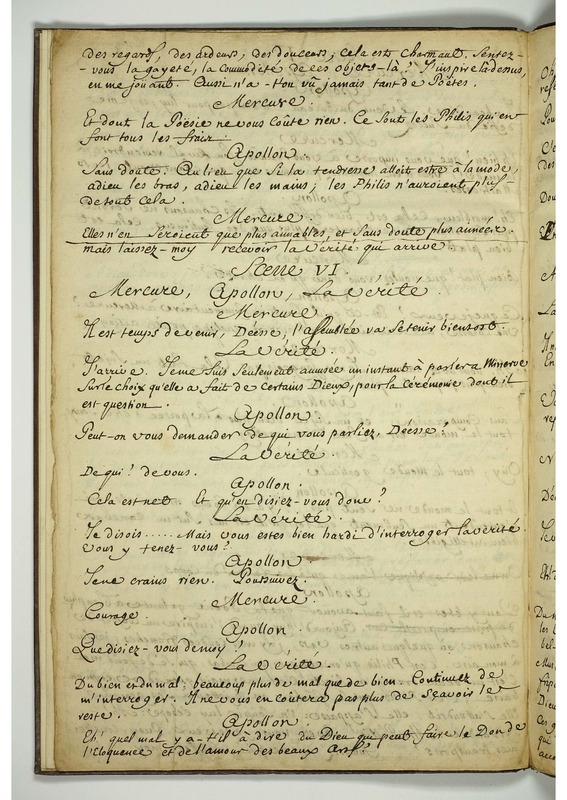 des regards, des ardeurs, des douceurs; cela est charmant. Sentez-
-vous la gayeté, la commodité de ces objets-là? J'inspire là dessus,
en me jouant. Aussi n'a-t'on vû jamais tant de Poëtes.
Mercure.
Et dont la Poësie ne vous coûte rien. Ce sont les Philis qui en
font tous les fraix.
Apollon.
Sans doute. Au lieu que si la tendresse alloit estre à la mode,
adieu les bras, adieu les mains; les Philis n'auroient plus-
de tout cela.
Mercure.
Elles n'en seroient que plus aimables, et sans doute plus aimées.
mais laissez-moy recevoir la vérité qui arrive.
Scene VI.
Mercure, Apollon, La Vérité.
Mercure
Il est temps de venir, Déesse, l'assemblée va se tenir bientost
La Vérité.
J'arrive. Je me suis seulement amusée un instant à parler a Minerve
Sur le choix qu'elle a fait de certains Dieux, pour la Cérémonie dont il
est question.
Apollon.
Peut-on vous demander de qui vous parliez, Déesse?
La Vérité.
De qui? de vous.
Apollon.
Cela est net. Et qu'en disiez-vous donc?
La Vérité.
Je disois..... Mais vous estes bien hardi d'interroger la vérité.
vous y tenez-vous?
Apollon.
Je ne crains rien. Poursuivez.
Mercure.
Courage.
Apollon.
Que disiez-vous de moy?
La Vérité.
Du bien et du mal; beaucoup plus de mal que de bien. Continuez de
m'interroger. Il ne vous en coûtera pas plus de sçavoir le
reste.
Apollon.
Eh! quel mal y a-t'il à dire du Dieu qui peut faire le Don de
l'Eloquence et de l'amour des beaux arts?